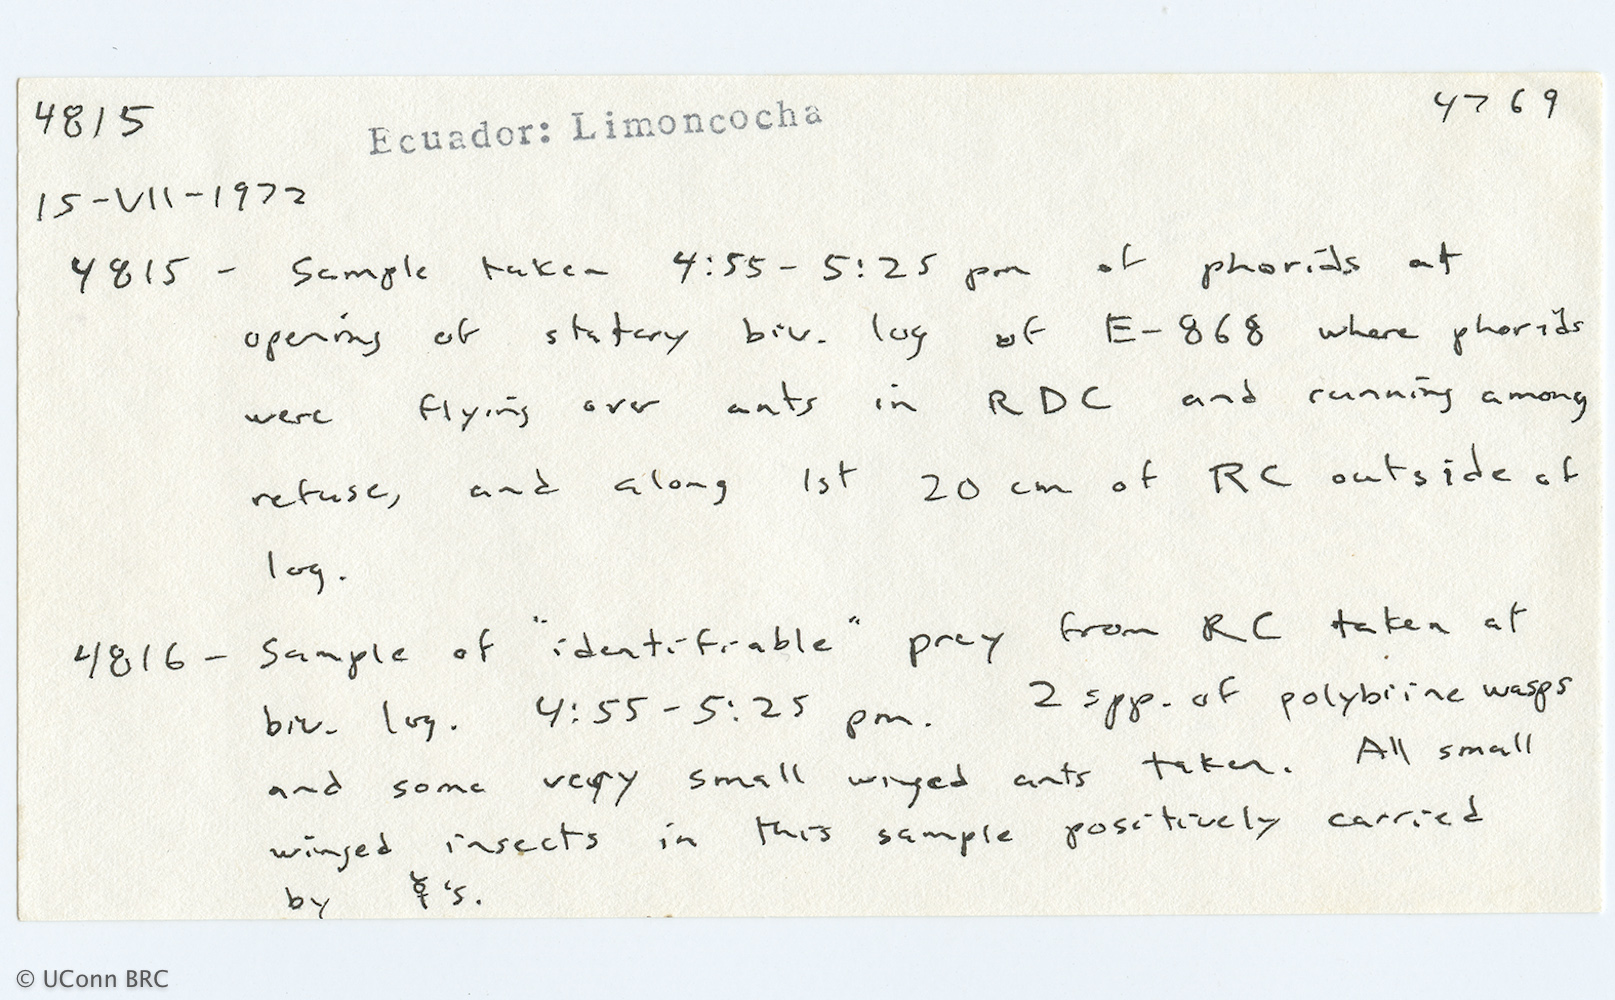 4815 Ecuador: Limoncocha 4769
15-VII-1972
4815 - Sample taken 4:55-5:25 pm of phorids at
opening of statary biv. log of E-868 where phorids
were flying over ants in RDC and running among
refuse, and along 1st 20 cm of RC outside of
log.
4816 - Sample of "identifiable" prey from RC taken at
biv. log. 4:55-5:25 pm. 2 spp. of polybiine wasps
and some very small winged ants taken. All small
winged insects in this sample positively carried
by ☿'s.
© UConn BRC